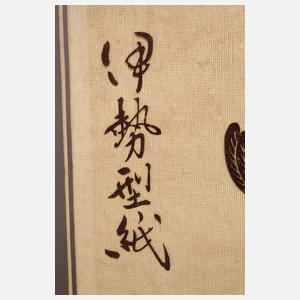 伊勢型紙